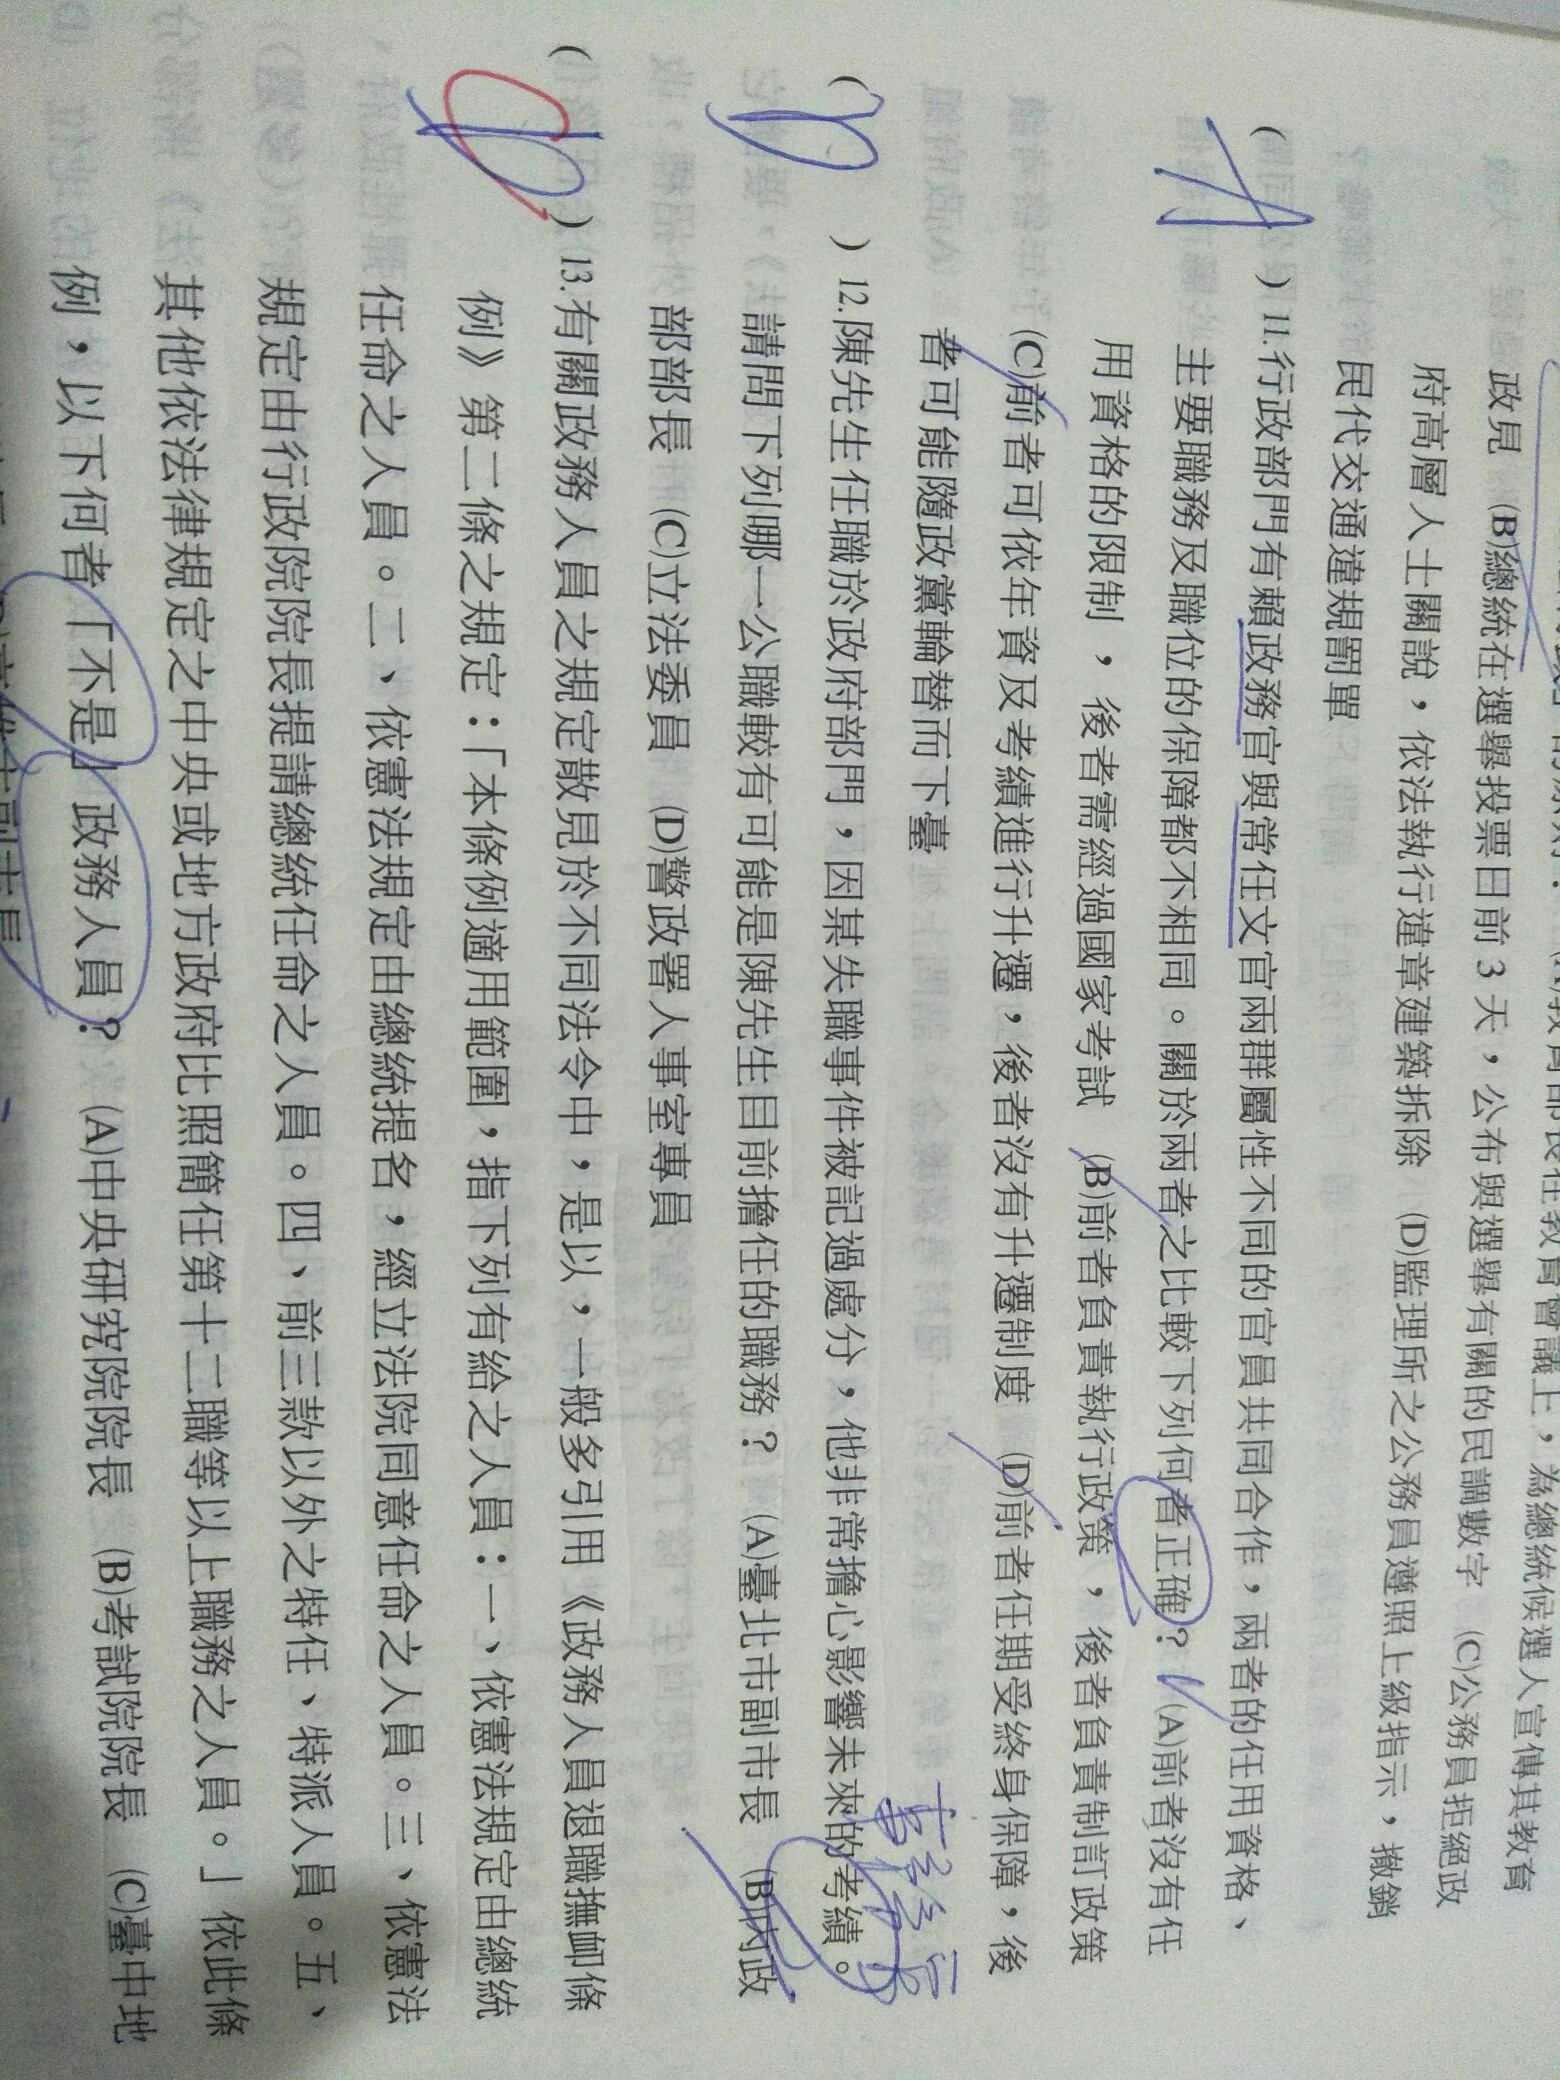 政見 (B)總統在選舉投票日前3天，公布與選舉有關的民調數字 (C)公務員拒絕政
府高層人士關說，依法執行違章建築拆除 (D)監理所之公務員遵照上級指示，撤銷
民代交通違規罰單
(A) 11.行政部門有賴政務官與常任文官兩群屬性不同的官員共同合作，兩者的任用資格、
主要職務及職位的保障都不相同。關於兩者之比較下列何者正確？ (A)前者沒有任
用資格的限制，後者需經過國家考試 (B)前者負責執行政策，後者負責制訂政策
(C)前者可依年資及考績進行升遷，後者沒有升遷制度 (D)前者任期受終身保障，後
者可能隨政黨輪替而下臺
(D) 12.陳先生任職於政府部門，因某失職事件被記過處分，他非常擔心影響未來的考績。
請問下列哪一公職較有可能是陳先生目前擔任的職務？ (A)臺北市副市長 (B)內政
部部長 (C)立法委員 (D)警政署人事室專員
( ) 13.有關政務人員之規定散見於不同法令中，是以，一般多引用《政務人員退職撫卹條
例》第二條之規定：「本條例適用範圍，指下列有給之人員：一、依憲法規定由總統
任命之人員。二、依憲法規定由總統提名，經立法院同意任命之人員。三、依憲法
規定由行政院院長提請總統任命之人員。四、前三款以外之特任、特派人員。五、
其他依法律規定之中央或地方政府比照簡任第十二職等以上職務之人員。」依此條
例，以下何者「不是」政務人員？ (A)中央研究院院長 (B)考試院院長 (C)臺中地